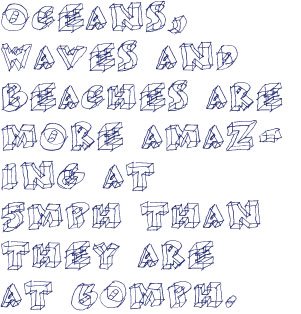 OCEANS,
WAVES AND
BEACHES ARE
MORE AMAZ-
ING AT
5MPH THAN
THEY ARE
AT 60MPH.